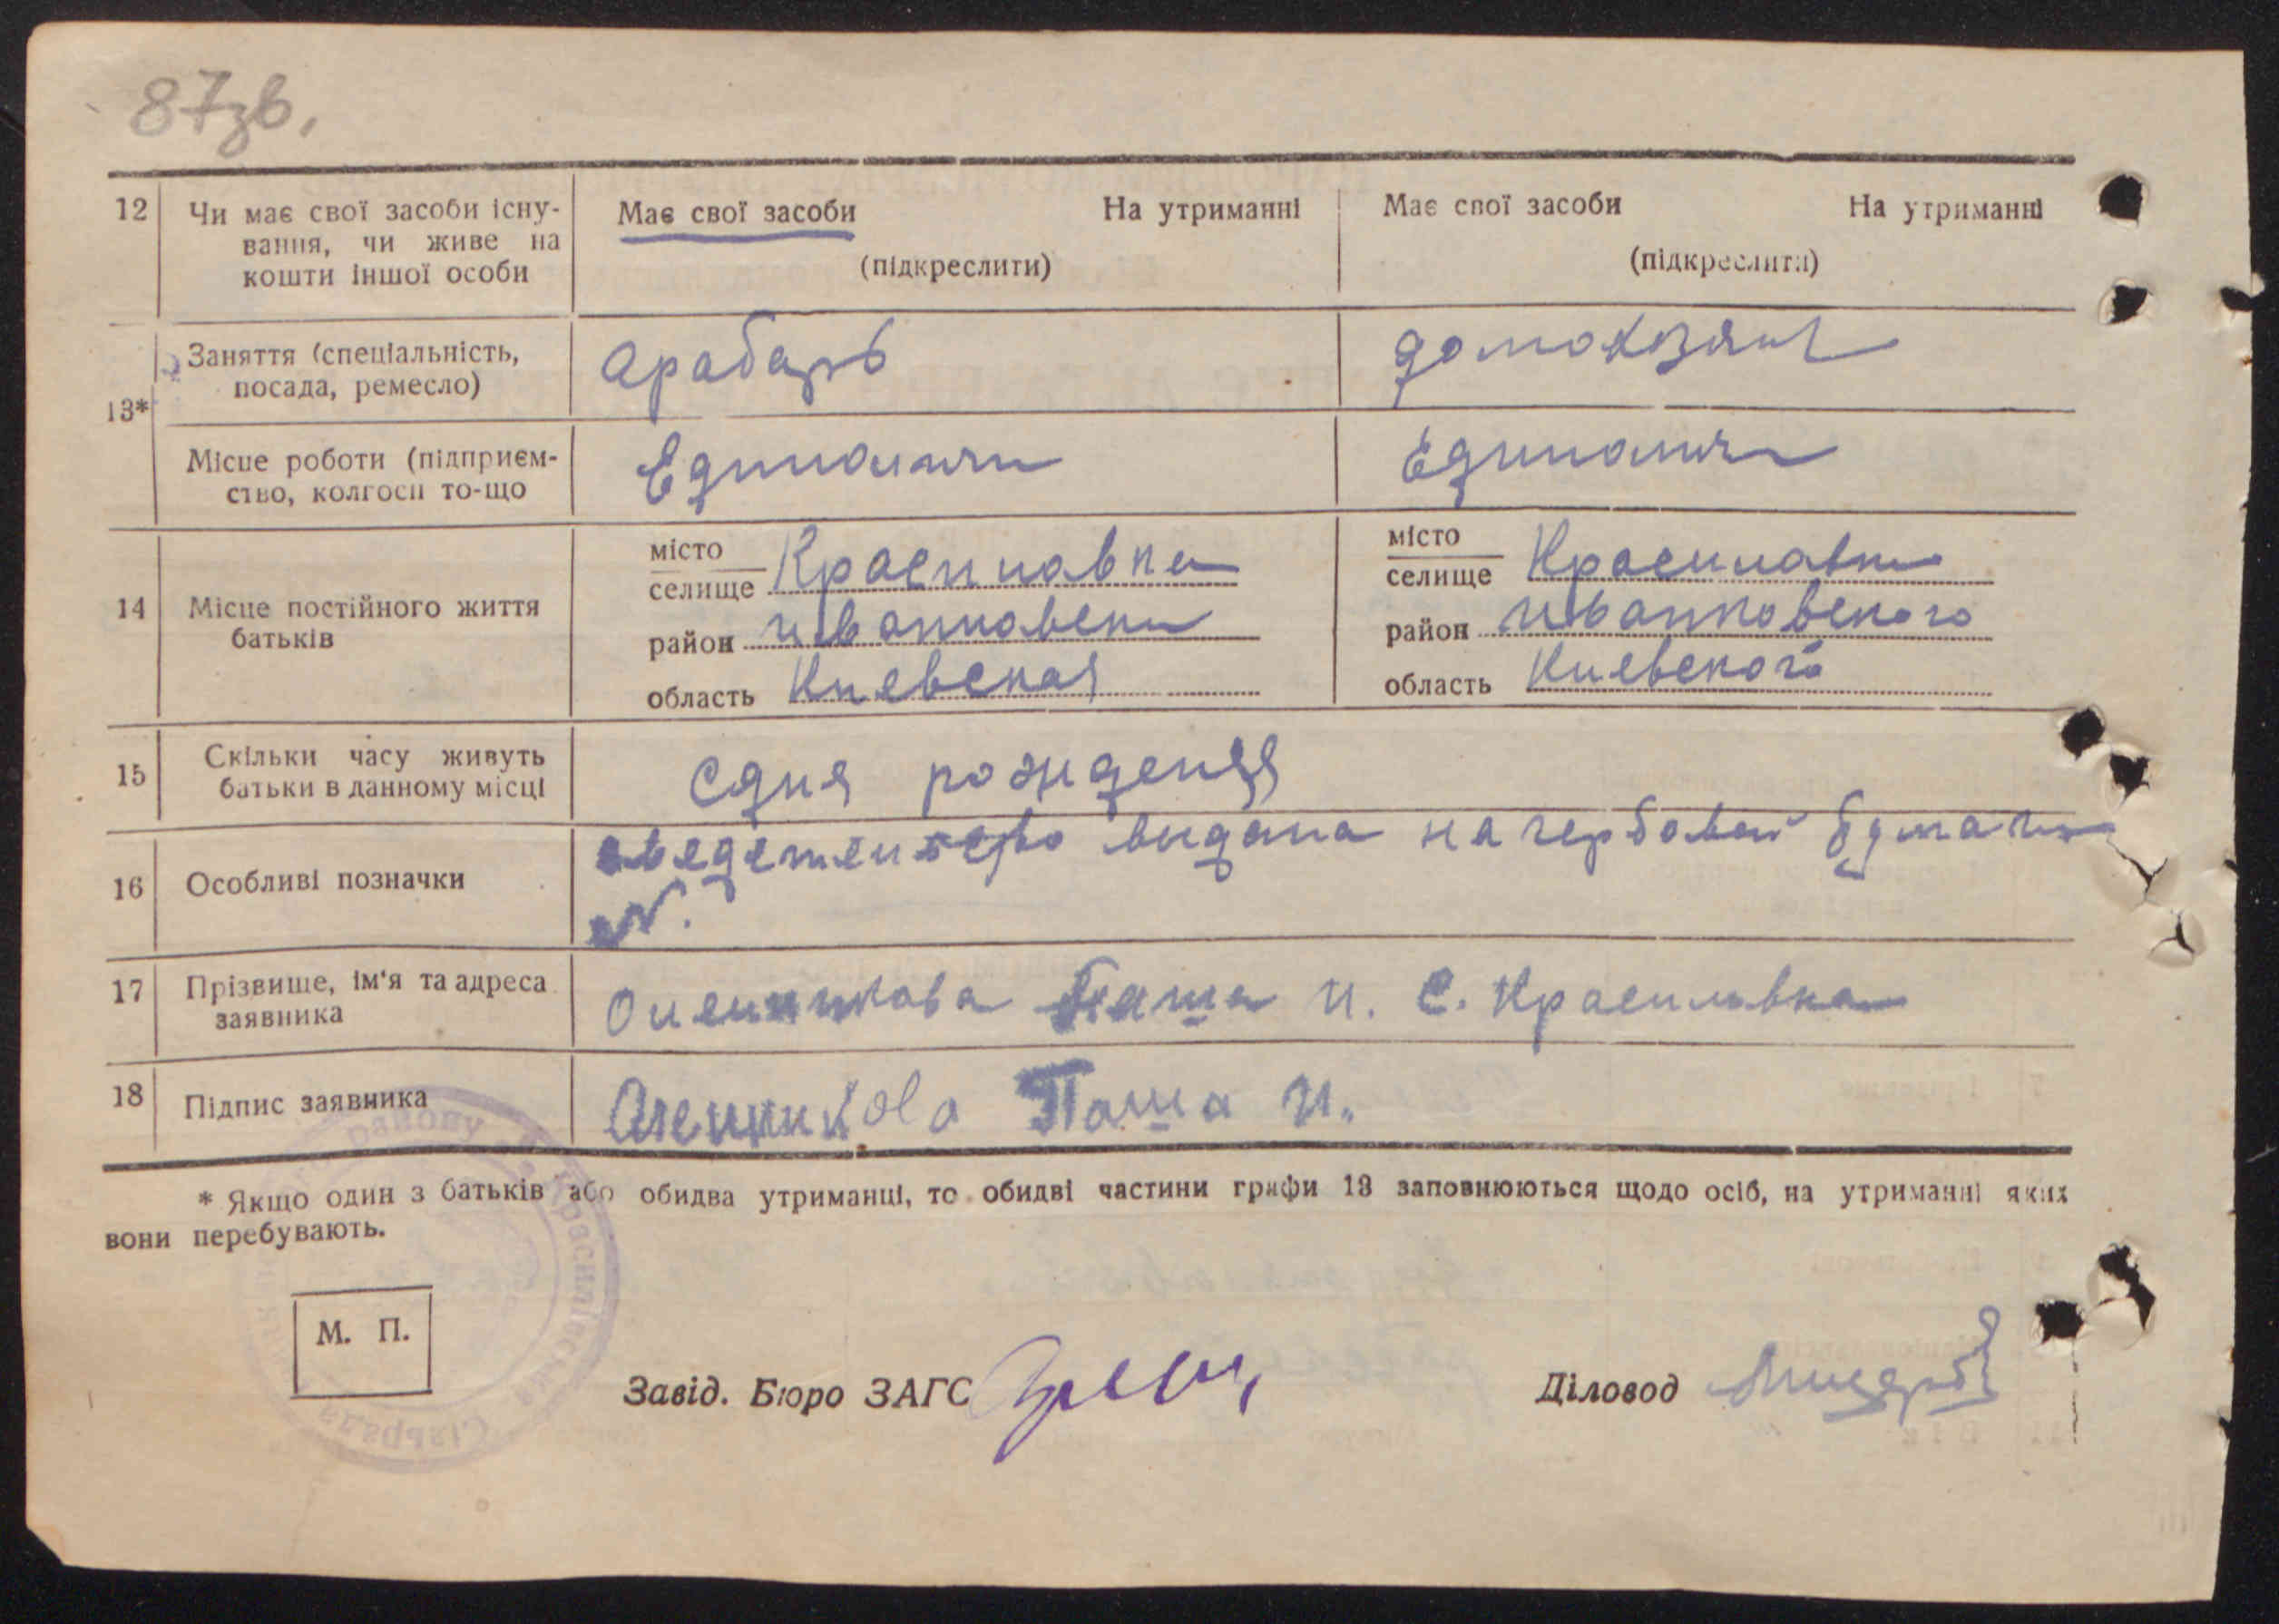 87зв.
12 Чи має свої засоби існу- Має свої засоби На утриманні Має свої засоби На утриманні
вання, чи живе на (підкреслити) (підкреслити)
кошти іншої особи
13* Заняття (спеціальність, арабарь домохозяи
посада, ремесло)
Місце роботи (підприєм-
ство, колгосп то-що
14 Місце постійного життя
батьків
місто
селище Красиловка
район
область Киевская
місто
селище
район иванковского
область Киевского
15 Скільки часу живуть
батьки в данному місці сдня рождения
16 Особливі позначки видана на гербовай бумаги
№.
17 Прізвище, ім'я та адреса
заявника Паша И. С. Красиловка
18 Підпис заявника Паша И.
* Якщо один з батьків або обидва утриманці, то обидві частини графи 13 заповнюються щодо осіб, на утриманні яких
вони перебувають.
М. П.
Завід. Бюро ЗАГС Діловод
району Красилівська Сільрада